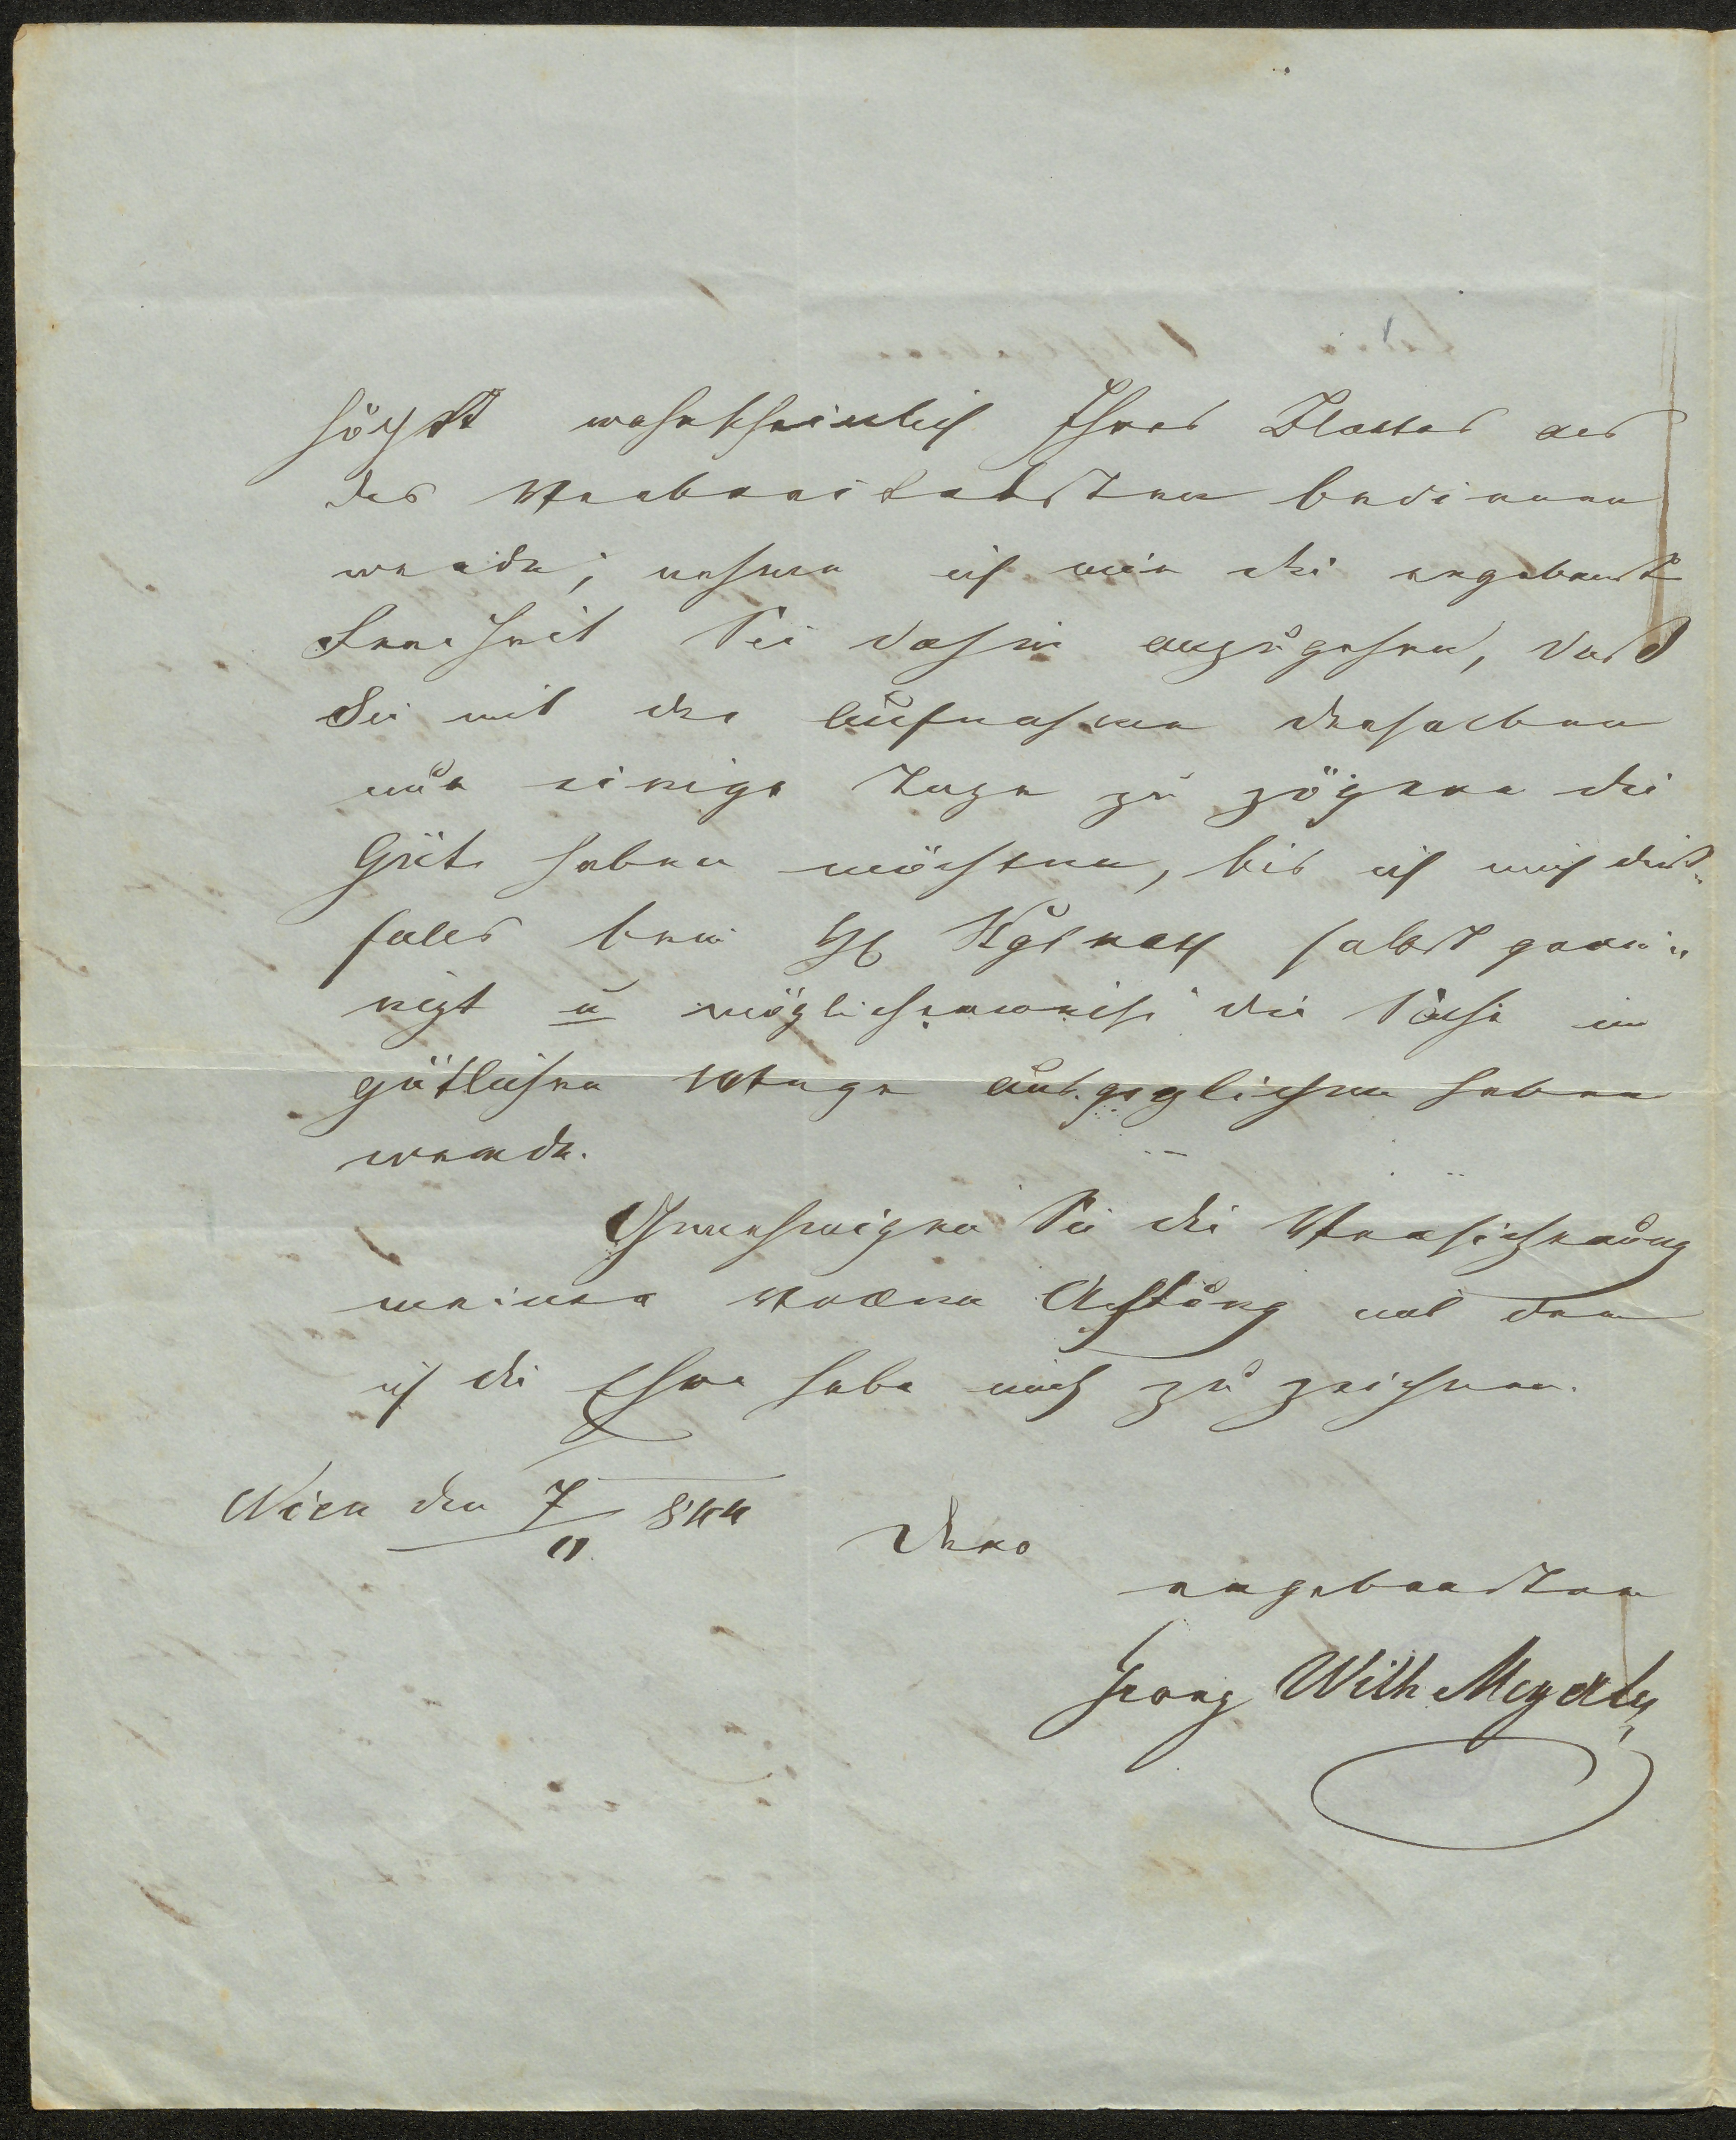 höchst wahrscheinlich Ihres Blattes als
des verbreitetsten bedienen
werde; nehme ich mir die ergebenste
Freiheit Sie dahin anzugehen, daß
Sie mit der Aufnahme desselben
nur einige Tage zu zögern die
Güte haben möchten, bis ich mich dies¬
falls beim H selbst gerei¬
nigt u möglicherweise die Sache im
gütlichen Wege ausgeglichen haben
werde.
Genehmigen Sie die Versicherung
meiner wahren Achtung mit der
ich die Ehre habe mich zu zeichnen.
Wien den 7/11 844
Dero
ergebenster
Georg Wilh Meyerle